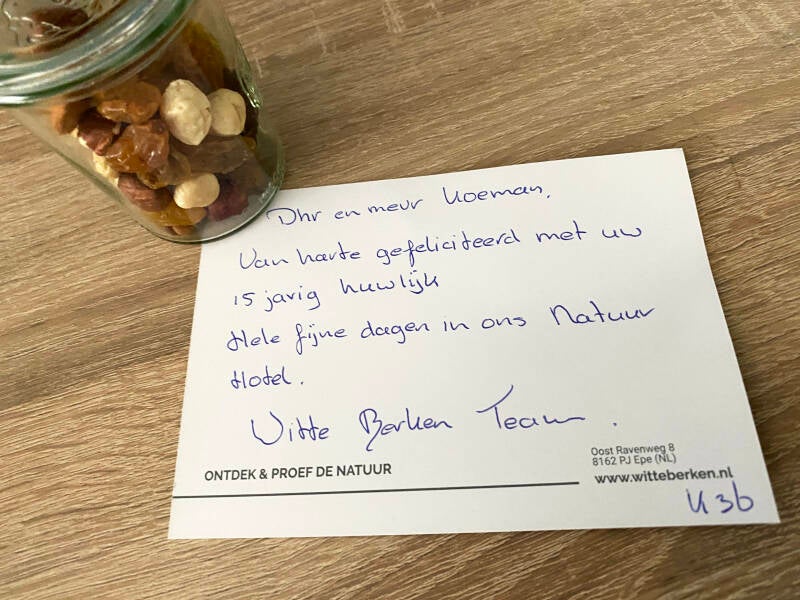 Dhr en mevr Koeman,
Van harte gefeliciteerd met uw
15 jarig huwlijk
Hele fijne dagen in ons Natuur
Hotel.
Witte Berken Team.
ONTDEK & PROEF DE NATUUR
Oost Ravenweg 8
8162 PJ Epe (NL)
www.witteberken.nl
K36